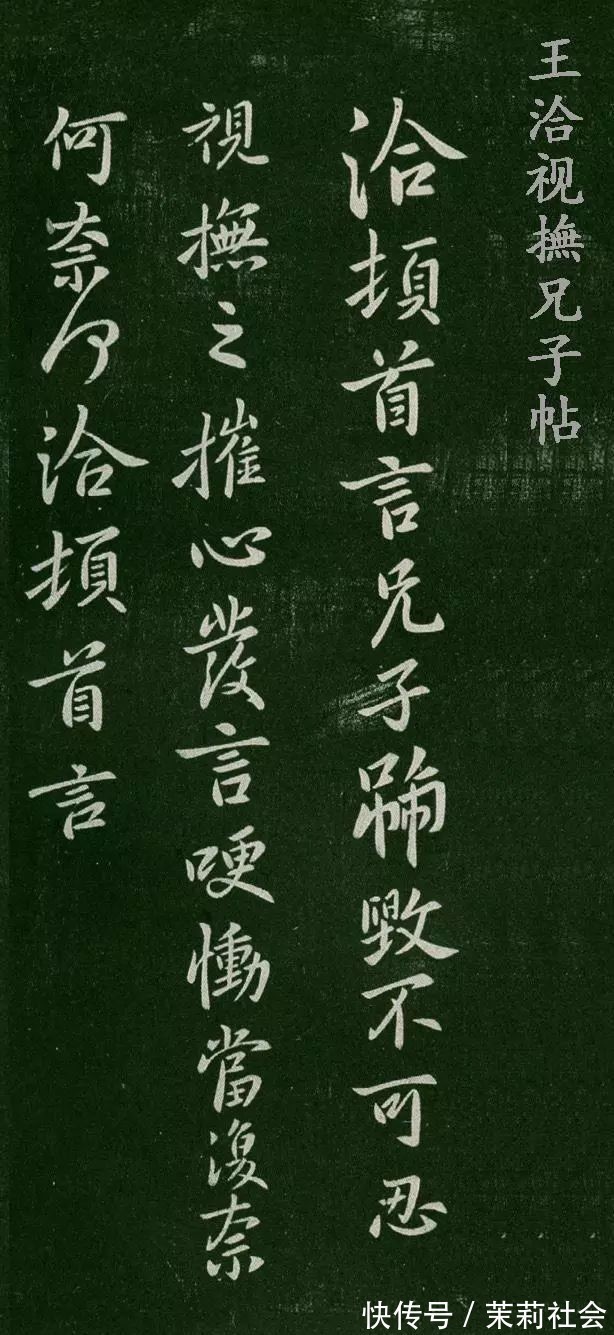 王洽视撫兄子帖
洽頓首言兄子號毀不可忍
視撫之摧心發言哽慟當復奈
何奈何洽頓首言
快传号 / 茉莉社会